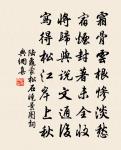 霜骨雲根慘淡愁
宿煙封著未全收
將歸與說文通後
寫得松江岸上秋
陸龜蒙松石曉景圖詞
典網集